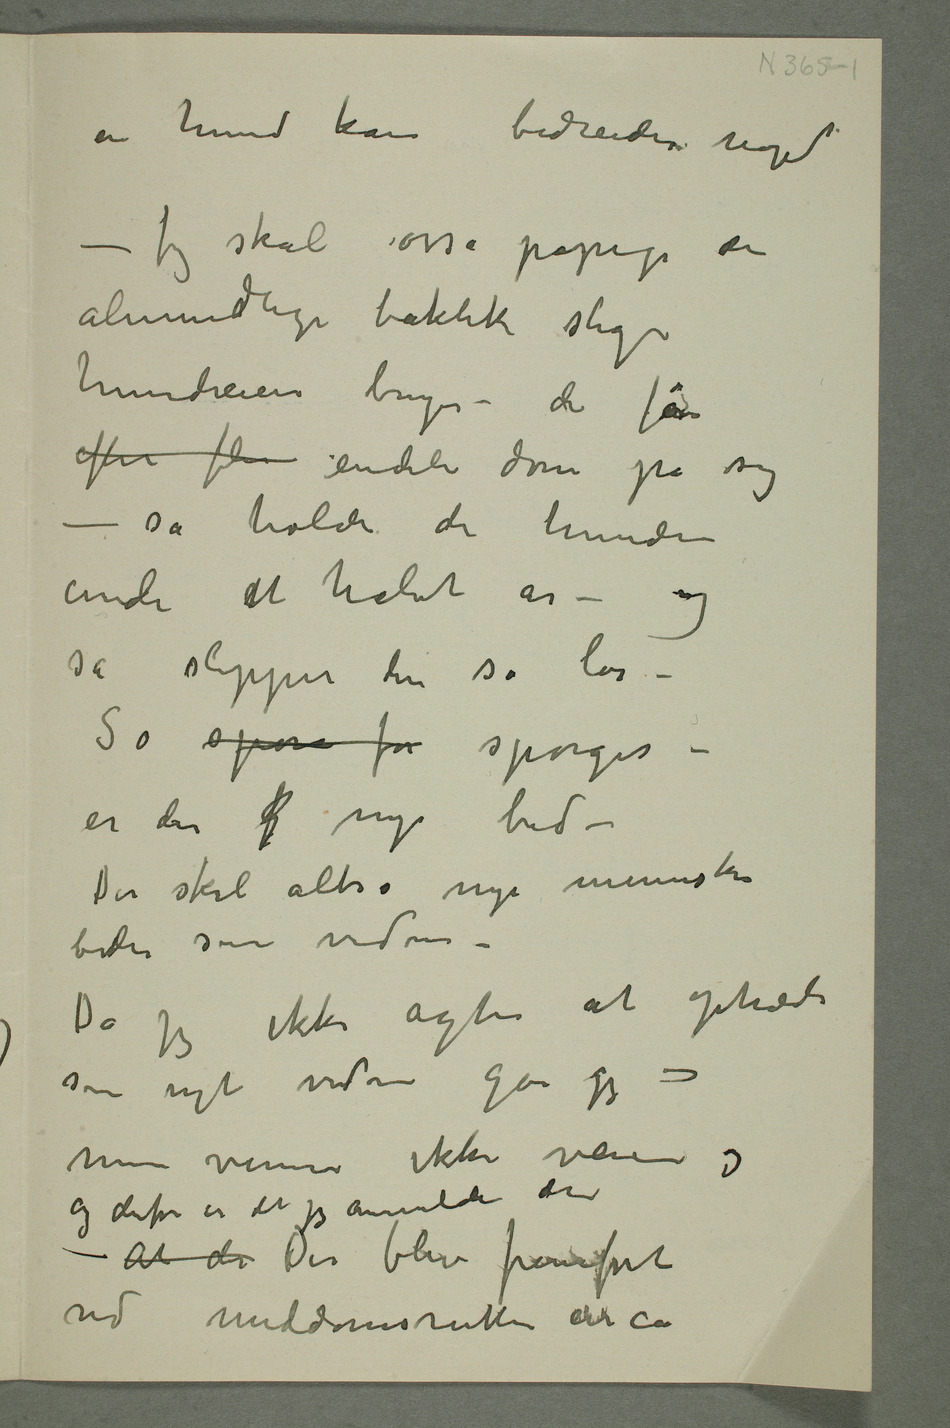 N 365-1
en hund kan bedreider noget
– Jeg skal også påpege den
almindelige taktik slige
hundeeiere bruger – de får
efter flere endeli dom på sig
– så holder de hunden
inde et halvt år – og
så slipper den så løs –
Så spørs for spørges –
er der nye bid –
Der skal altså nye mennesker
bides som vidner –
Da jeg ikke agter at optræde
som nyt vidne går jeg –
min venner ikke veien
og derfor er det jeg anmelder den
– At de Der blev fremført
ved meddomsretten circa